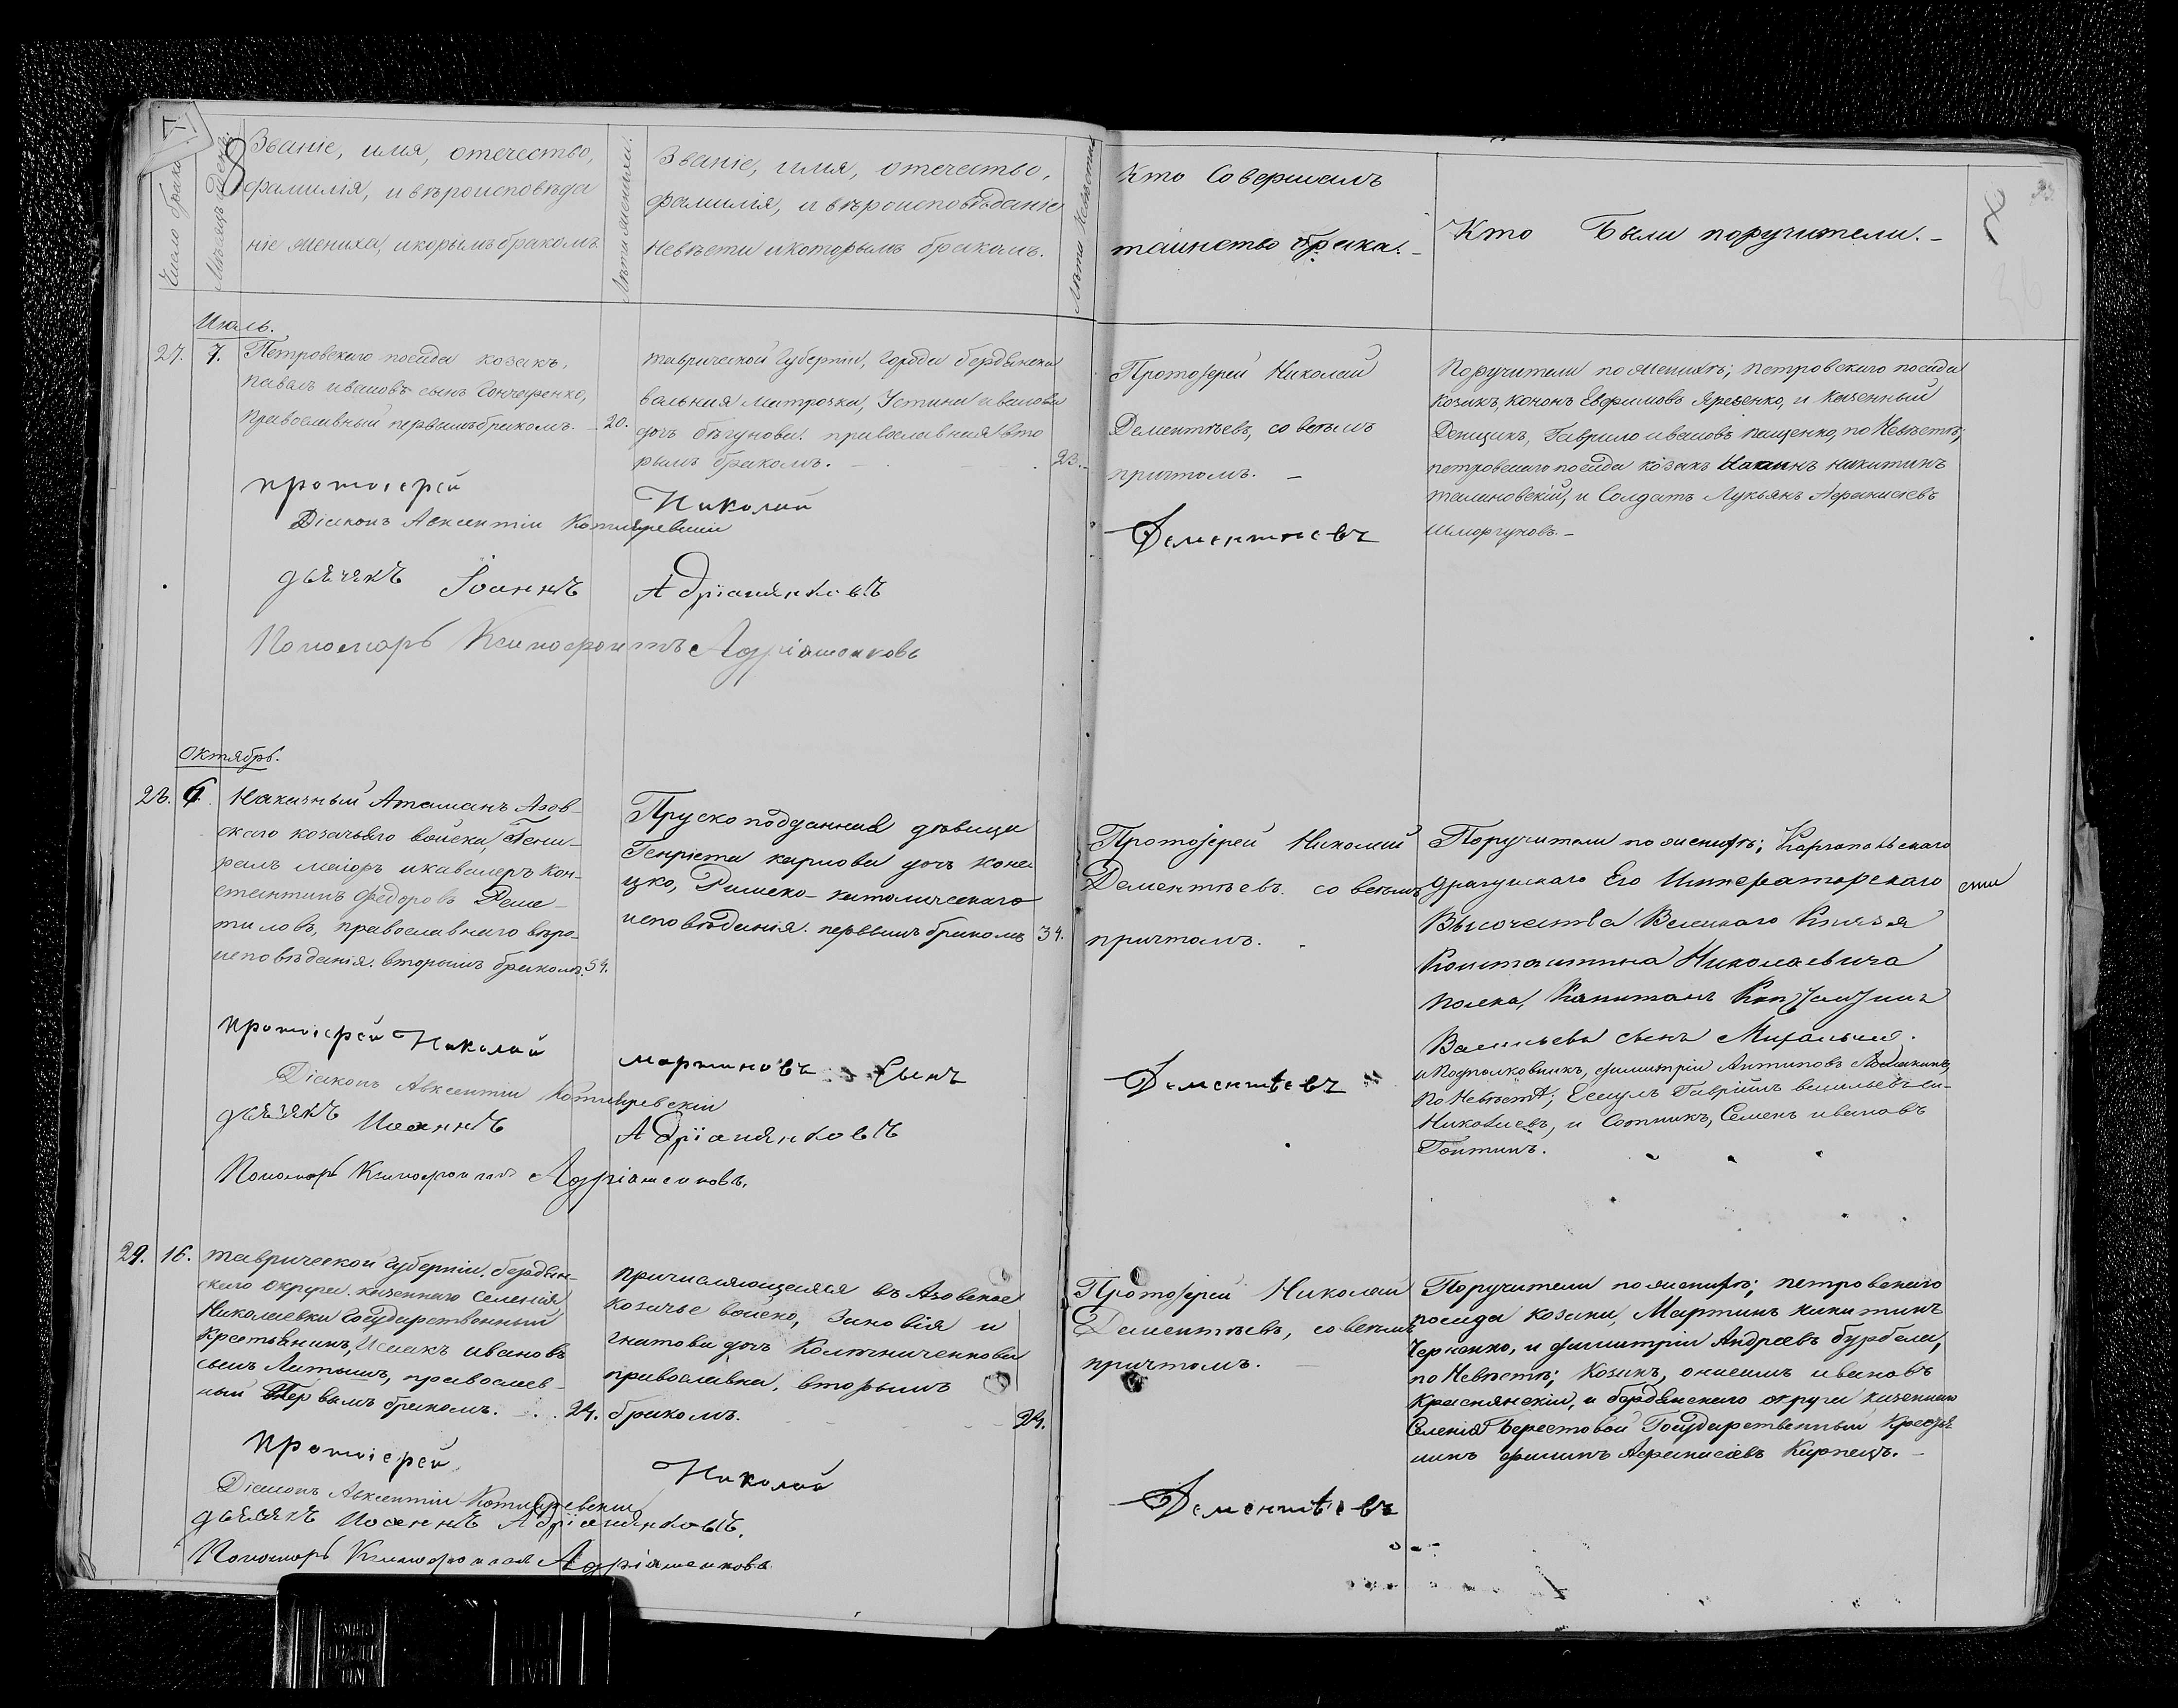 Число брака.
Мѣсяцъ и день.
Званіе, имя, отечество,
фамилія, и вѣроисповѣда
ніе жениха, и корымъ бракомъ
Лѣта жениха.
Званіе, имя, отечество,
фамилія, и вѣроисповѣданіе
Невѣсты и которымъ бракомъ.
Лѣта Невѣсты
Кто Совершалъ
таинство брака.
Кто Были поручители.
Июль.
27. 7. Петровскаго посада козакъ,
павелъ ивановъ сынъ Гончаренко,
православный первымъ бракомъ. 20.
таврической Губерніи, города бердянска
вольная матрозка, Устина иванова
дочь бѣгунова. православная вто
рымъ бракомъ. 23.
Протоіерей Николай
Дементѣевъ, со всѣмъ
причтомъ.
Поручители по женихѣ; петровскаго посада
козакъ, кононъ Евфимовъ Яресенко, и казенный
Денщикъ, Гаврило ивановъ пащенко, по Невѣстѣ;
петровскаго посада козакъ никитинъ
талиновскій, и Солдатъ Лукьянъ Афанасіевъ
Шморгуновъ.
протоіерей Николай Дементиевъ
Діаконъ Авксентіи Котляревскіи
дьячекъ Іоаннъ Адріяшенковъ
Пономарь Ксинофонтъ Адріяшенковъ
Октябрь.
28. 6. Наказный Атаманъ Азов-
скаго козачьяго войска, Гене-
ралъ маіоръ и кавалеръ Кон-
стантинъ Федоровъ
тиловъ, православнаго вѣро-
исповѣданія. вторымъ бракомъ. 54.
Прускоподданная дѣвица
Генріета карлова дочь коне
цко, Римско-католическаго
исповѣданія. первымъ бракомъ 34.
Протоіерей Николай
Дементѣевъ. со всѣмъ
причтомъ.
Поручители по женихѣ; Каргопольскаго
драгунскаго Его Императорскаго
Высочества Великаго Князя
Константина Николаевича
полка, Капитанъ Константинъ
Васильевъ сынъ
и Подполковникъ, димитріи Антиповъ
по Невѣстѣ; Есаулъ Гаврійлъ васильевъ си-
никовъ, и Сотникъ, Семенъ ивановъ
Гонтинъ.
протоіерей Николай мартиновъ Сынъ Дементѣевъ
Діаконъ Авксентіи Котляревскіи
дьячекъ Иоаннъ Адріяшенковъ
Пономарь Ксинофонтъ Адріяшенковъ.
29. 16. таврической Губерніи, бердян-
скаго округа казеннаго Селенія
Николаевки Государственный
Крестьянинъ, Исаакъ ивановъ
сынъ Латышъ, православ-
ный Первымъ бракомъ. 24.
причисляющаяся въ Азовское
козачье войско, Зиновія и
гнатова дочь Колтниченкова
православна, вторымъ
бракомъ. 24.
Протоіерей Николай
Дементѣевъ, со всѣмъ
причтомъ.
Поручители по женихѣ; петровскаго
посада козаки, Мартинъ никитинъ
Черненко, и димитріи Андреевъ бурбела,
по Невѣстѣ; козакъ, онисимъ ивановъ
Краснянскій, и бердянскаго округа казеннаго
Селенія берестовой Государственный Крестья
нинъ филипъ Афанасіевъ Карпецъ.
протоіерей Николай Дементѣевъ
Діаконъ Авксентіи Котляревскіи
дьячекъ Иоаннъ Адріяшенковъ.
Пономарь Ксинофонтъ Адріяшенковъ